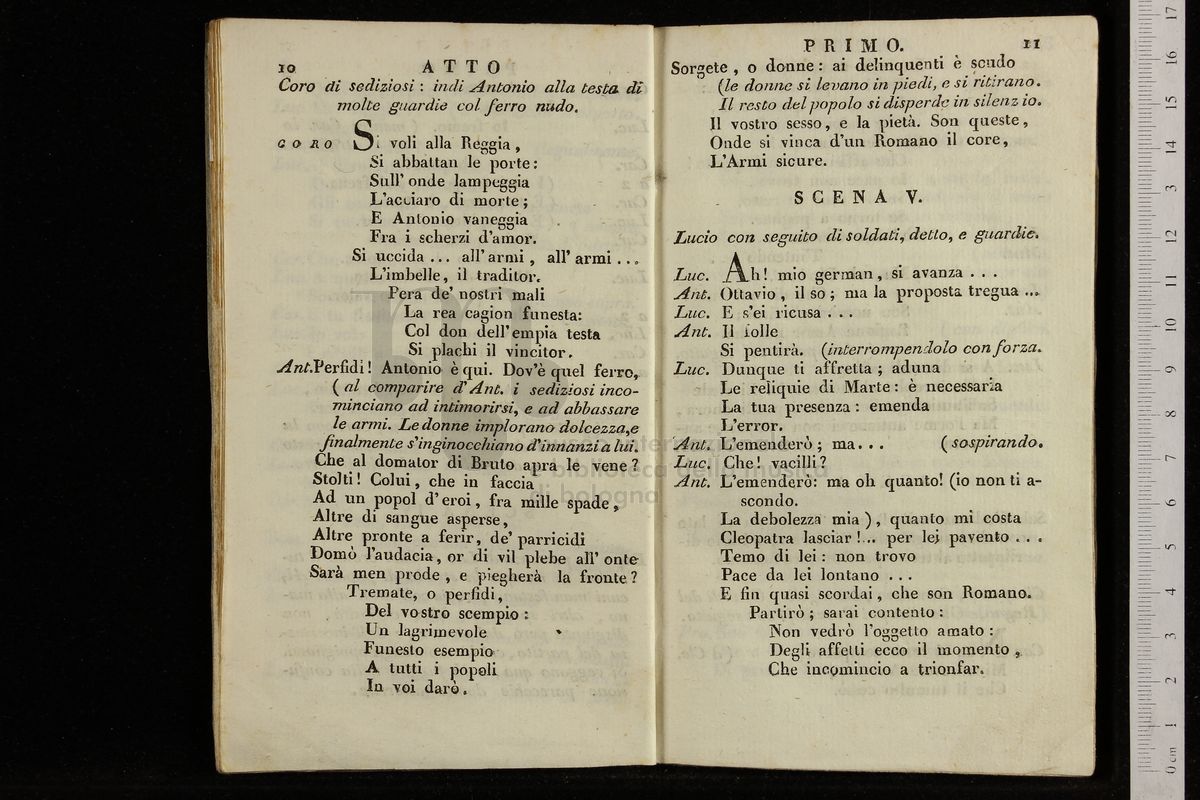 10 ATTO
Coro di sediziosi : indi Antonio alla testa di
molte guardie col ferro nudo.
CORO Si voli alla Reggia,
Si abbattan le porte:
Sull' onde lampeggia
L'acciaro di morte;
E Antonio vaneggia
Fra i scherzi d'amor.
Si uccida ... all' armi, all' armi ...
L'imbelle, il traditor.
Pera de' nostri mali
La rea cagion funesta:
Col don dell' empia testa
Si plachi il vincitor.
Ant. Perfidi! Antonio è qui. Dov'è quel ferro,
( al comparire d' Ant. i sediziosi inco-
minciano ad intimorirsi, e ad abbassare
le armi. Le donne implorano dolcezza, e
finalmente s'inginocchiano d'innanzi a lui.
Che al domator di Bruto apra le vene?
Stolti! Colui, che in faccia
Ad un popol d'eroi, fra mille spade,
Altre di sangue asperse,
Altre pronte a ferir, de' parricidi
Domò l'audacia, or di vil plebe all' onte
Sarà men prode, e piegherà la fronte?
Tremate, o perfidi,
Del vostro scempio:
Un lagrimevole
Funesto esempio
A tutti i popoli
In voi darò.
PRIMO. 11
Sorgete, o donne: ai delinquenti è scudo
(le donne si levano in piedi, e si ritirano.
Il resto del popolo si disperde in silenzio.
Il vostro sesso, e la pietà. Son queste,
Onde si vinca d'un Romano il core,
L'Armi sicure.
SCENA V.
Lucio con seguito di soldati, detto, e guardie.
Luc. Ah! mio german, si avanza ...
Ant. Ottavio, il so; ma la proposta tregua ...
Luc. E s'ei ricusa ...
Ant. Il folle
Si pentirà. (interrompendolo con forza.
Luc. Dunque ti affretta; aduna
Le reliquie di Marte: è necessaria
La tua presenza: emenda
L'error.
Ant. L'emenderò; ma... ( sospirando.
Luc. Che! vacilli?
Ant. L'emenderò: ma oh quanto! (io non ti a-
scondo.
La debolezza mia), quanto mi costa
Cleopatra lasciar!... per lei pavento ...
Temo di lei: non trovo
Pace da lei lontano ...
E fin quasi scordai, che son Romano.
Partirò; sarai contento:
Non vedrò l'oggetto amato:
Degli affetti ecco il momento,
Che incomincio a trionfar.